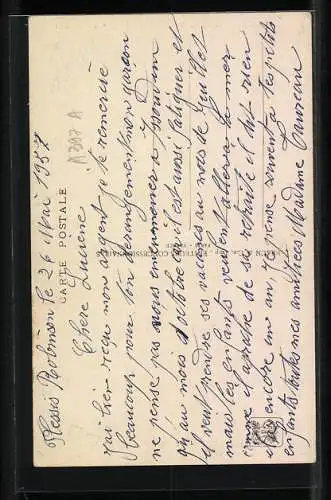 Plessis Robinson le 26 Mai 1957
CARTE POSTALE
A307 A
Chère Lucienne
j'ai hier reçu mon argent je te remercie
beaucoup pour ton dérangement mon garçon
ne pense pas nous emmener à
qu'au mois d'octobre il est aussi fatiguer et
il veut prendre ses vacances au mois de Juillet
mais les enfants veulent aller à la mer
il arrête de sa retraite il dit rien
encore un an je pense souvent à tes petits
enfants toutes mes amitiées Madame